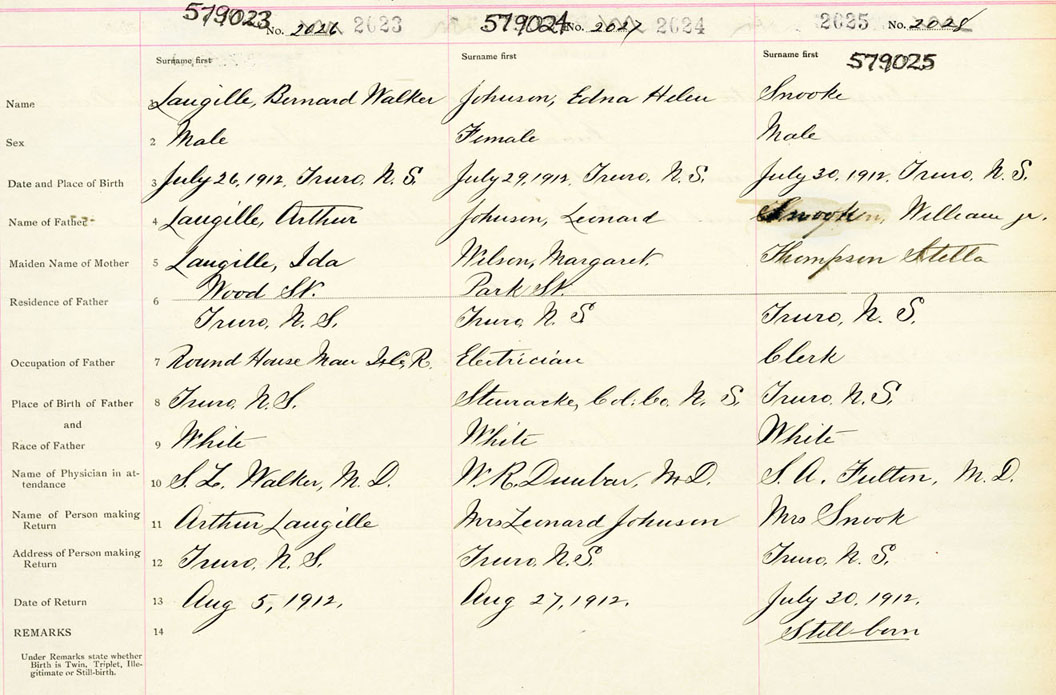 579023 No. 2026 2023 579024 No. 2027 2024 2025 No. 2028
Surname first Surname first Surname first 579025
Name Langille, Bernard Walker Johnson, Edna Helen Snooke
Sex 2 Male Female Male
Date and Place of Birth 3 July 26, 1912, Truro, N. S. July 29, 1912, Truro, N. S. July 30, 1912, Truro, N. S.
Name of Father 4 Langille, Arthur Johnson, Leonard William jr.
Maiden Name of Mother 5 Langille, Ida Wilson, Margaret Thompson Stella
Wood St. Park St.
Residence of Father 6
Truro, N. S. Truro, N. S Truro, N. S.
Occupation of Father 7 Round House Man R. Electrician Clerk
Place of Birth of Father 8 Truro, N. S. Col. Co. N. S. Truro, N. S.
and
Race of Father 9 White White White
Name of Physician in at-
tendance 10 S. L. Walker, M. D. W. R. Dunbar, M. D. S. A. Fulton, M. D.
Name of Person making
Return 11 Arthur Langille Mrs Leonard Johnson Mrs Snook
Address of Person making
Return 12 Truro, N. S. Truro, N. S. Truro, N. S.
Date of Return 13 Aug 5, 1912. Aug 27, 1912. July 30, 1912.
REMARKS 14 Still-born
Under Remarks state whether
Birth is Twin, Triplet, Ille-
gitimate or Still-birth.